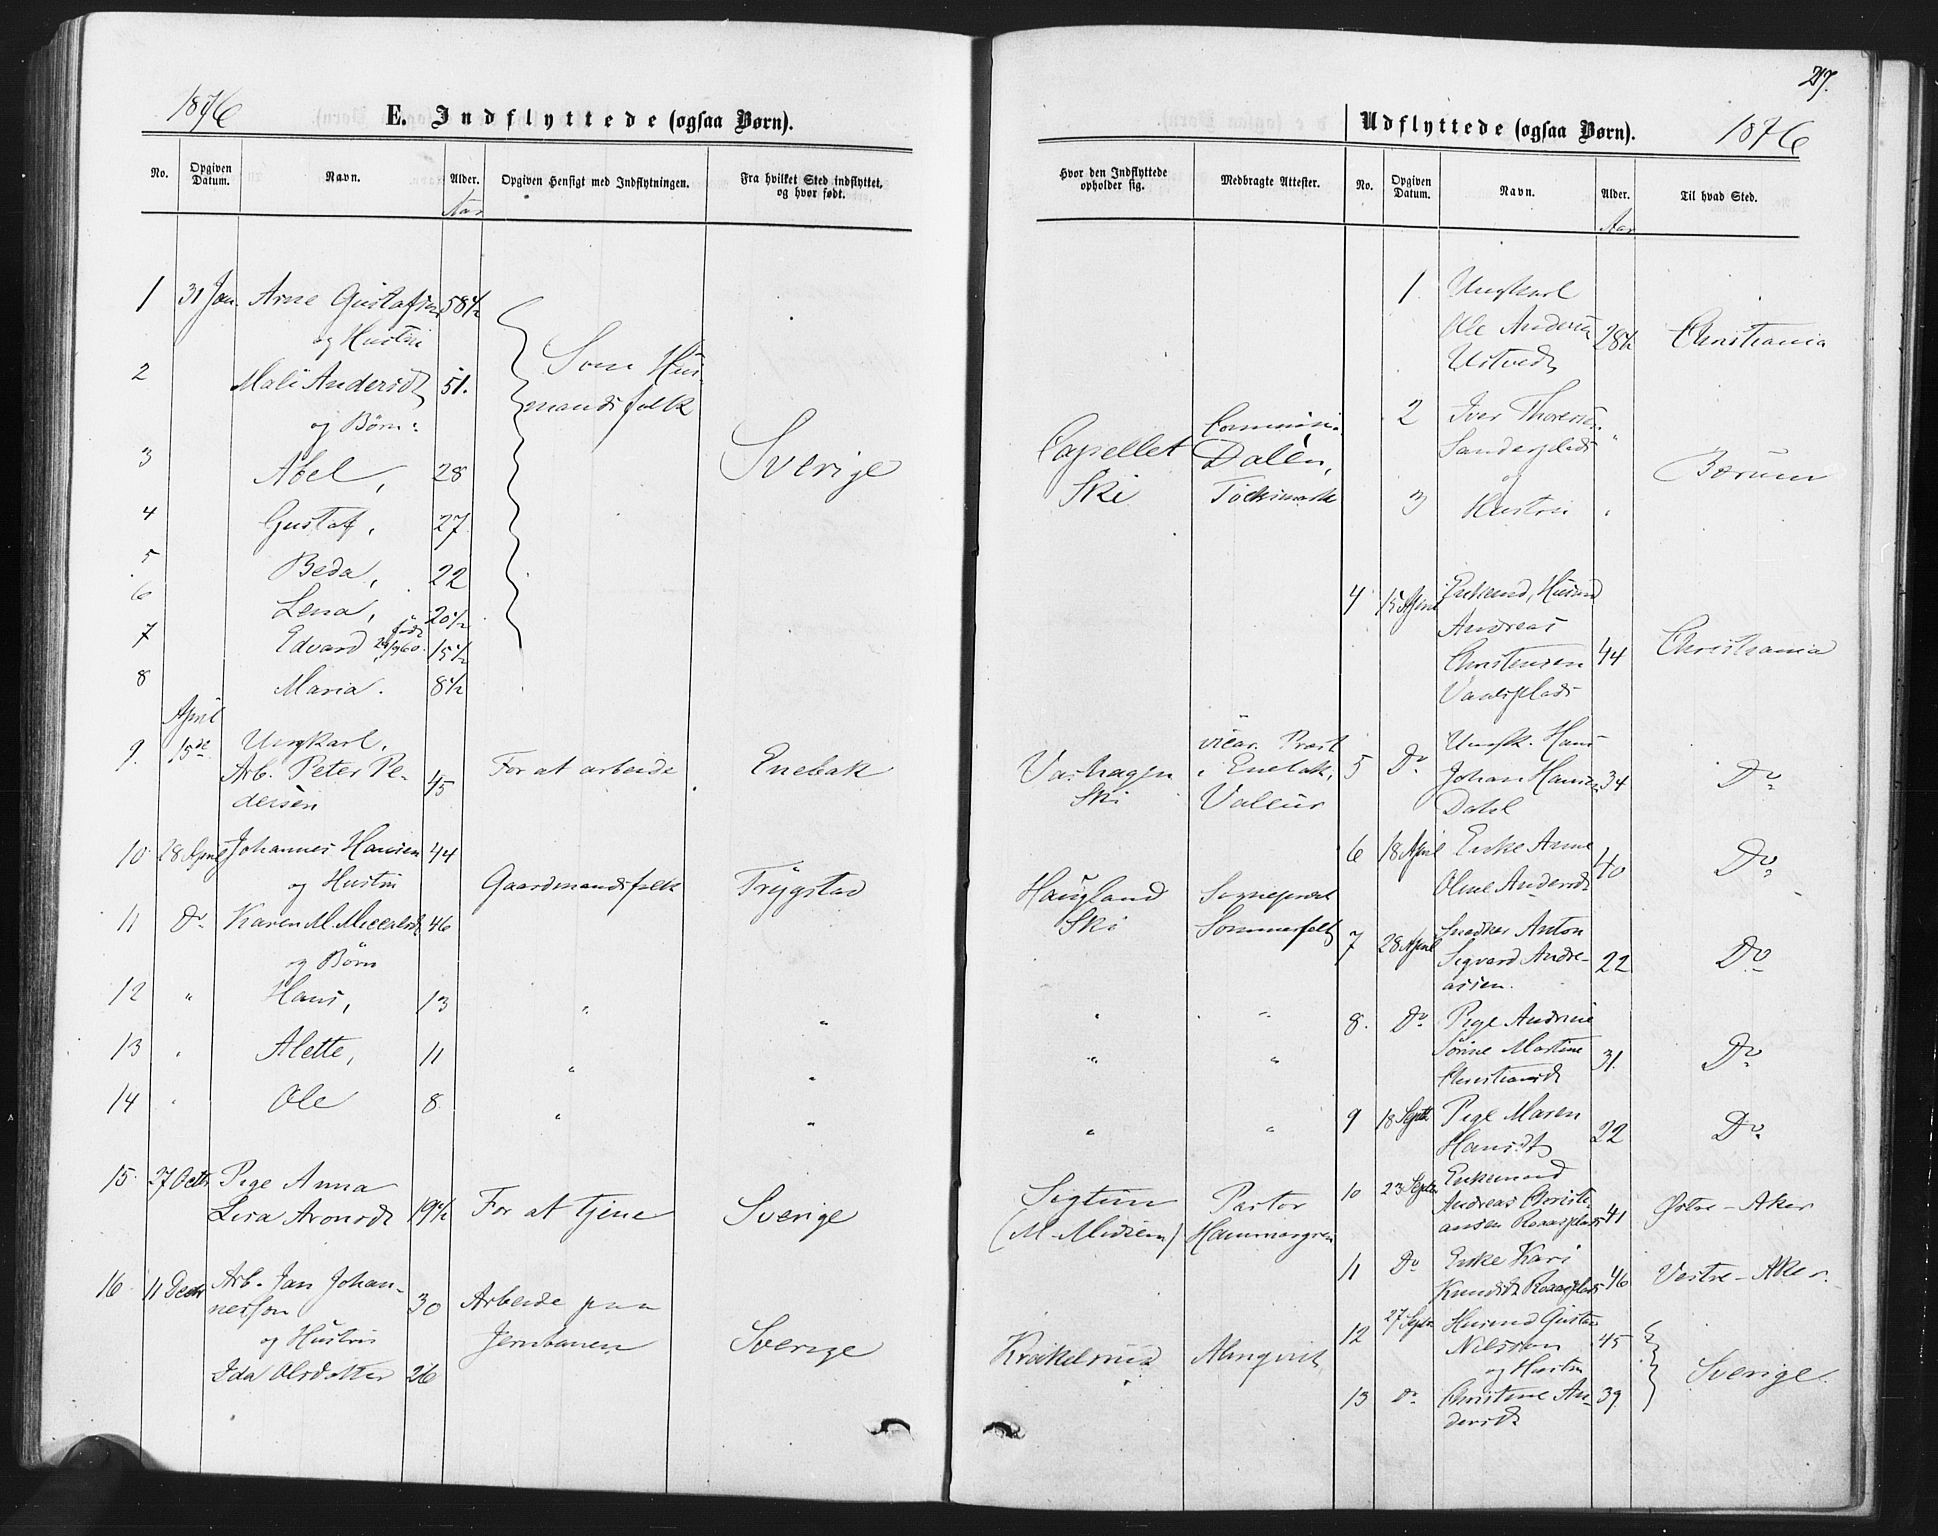 1876
E. Indflyttede (ogsaa Børn).
No.
Opgiven Datum.
Navn.
Alder.
Opgiven Hensigt med Indflytningen.
Fra hvilket Sted indflyttet, og hvor født.
Aar
1 31 Jan. Arne Gustafsen 58 1/2
og Hustru
2 Mali Andersd 51.
og Børn:
Som Hus-
mandsfolk
3 Abel, 28
Sverige
4 Gustaf, 27
5 Beda, 22
6 Lena, 20 1/2
7 Edvard født 15 1/2
8 Maria. 8 1/2
April
9. 15de Ungkarl,
Arb. Peter Pe- 45 For at arbeide Enebak
dersen
10 28 April Johannes Hansen 44
og Hustru Gaardmandsfolk Trygstad
11 Do Karen M. 46
og Børn
12 " Hans, 13 " "
13 " Alette, 11 " "
14 " Ole 8 " "
15. 27 Octr Pige Anna
Lisa Aronsdt 19 1/2 For at tjene Sverige
16 11 Decbr Arb. Jan Johan-
nesson 30 Arbeide paa
og Hustru Jernbanen Sverige
Ida Olsdatter 26
27.
Udflyttede (ogsaa Børn). 1876
Hvor den Indflyttede opholder sig.
Medbragte Attester.
No.
Opgiven Datum.
Navn.
Alder.
Til hvad Sted.
Aar
Capellet
Ski
Dalén,
Varhagen
Ski
vicar. Præst
i Enebak,
Valeur
Haugland
Ski
Sogneprest
Sommerfelt
" "
" "
" "
Pastor
Hammargren
Almqvist
1. Ungkarl
Ole Andersen 28 1/2 Christiania
Ustvedt
2 Iver Thoresen "
Sanderplads
og Bærum
3 Hustru "
4 15 April Enkemd, Husmd
Andreas
Christensen 44 Christiania
5 Do Ungk. Hans
Johan Hansen 34 Do
Dahl
6 18 April Enke Anne
Oline Andersdt 40 Do
7 28 April Snedker Anton
Sigvard Andre- 22 Do
assen.
8. Do Pige Andrine
Sørine Martine 31. Do
Christiansdt
9 18 Septb Pige Maren
Hansdt 22 Do
10 23 Septbr Enkemand
Andreas Christi-
ansen Raasplads 41 Østre-Aker
11 Do Enke Kari
Knudsdt Raasplads 46 Vestre-Aker.
12 27 Septbr Husmd Gustav
Nilsson 45
og Hustru Sverige.
13 Do Christine An- 39
dersdt